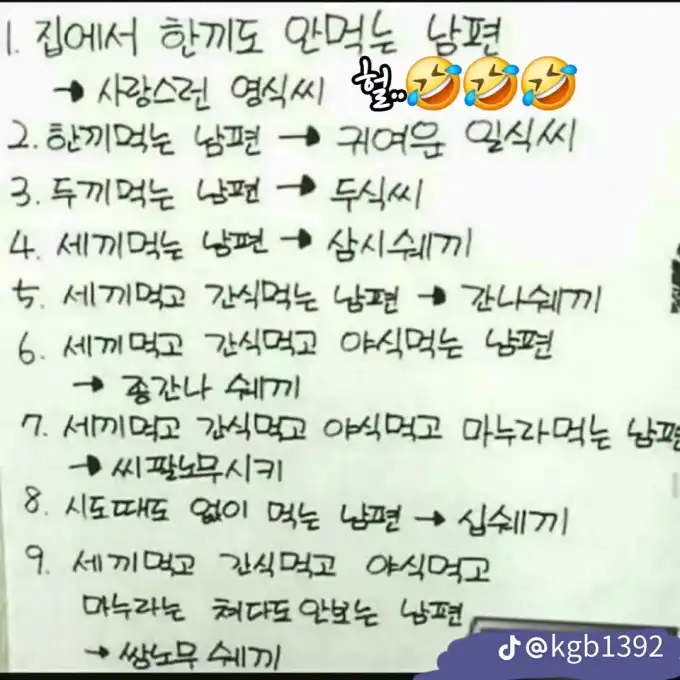 1. 집에서 한끼도 안먹는 남편
→ 사랑스런 영식씨 헐..🤣🤣🤣
2. 한끼먹는 남편 → 귀여운 일식씨
3. 두끼먹는 남편 → 두식씨
4. 세끼먹는 남편 → 삼시쉐끼
5. 세끼먹고 간식먹는 남편 → 간나쉐끼
6. 세끼먹고 간식먹고 야식먹는 남편
→ 종간나 쉐끼
7. 세끼먹고 간식먹고 야식먹고 마누라먹는 남편
→ 씨팔노무시키
8. 시도때도 없이 먹는 남편 → 십쉐끼
9. 세끼먹고 간식먹고 야식먹고
마누라는 쳐다도안보는 남편
→ 쌍노무 쉐끼
@kgb1392